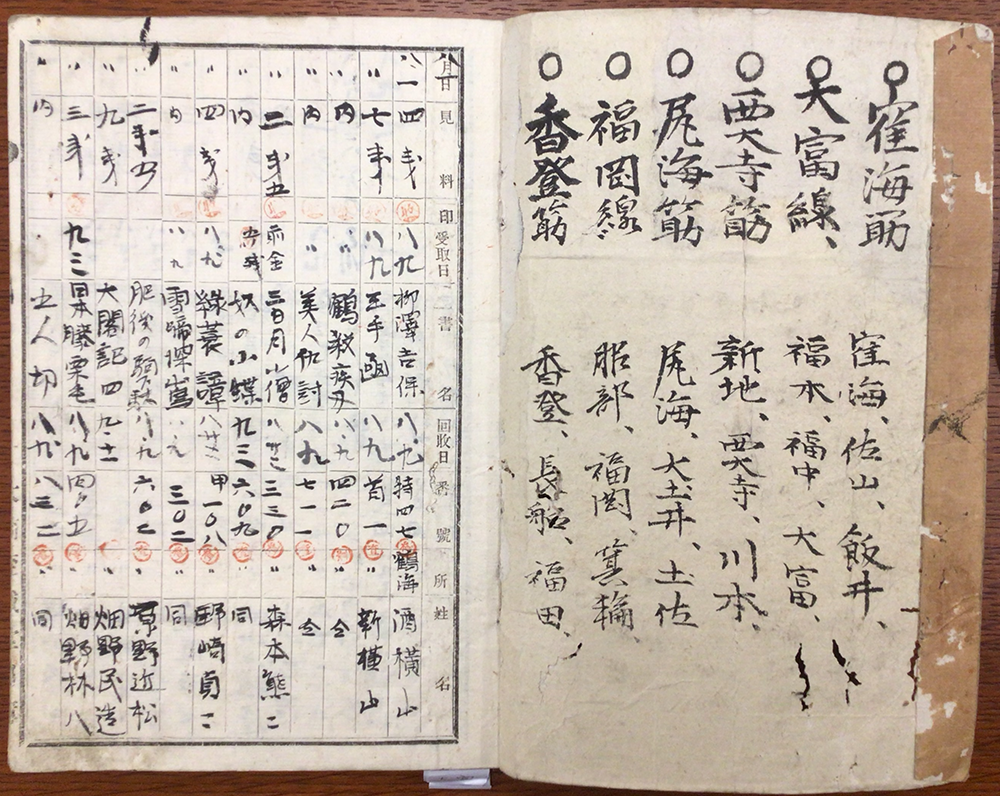 ○窪海筋　窪海、佐山、飯井、
○大富線、　福永、福中、大富、
○西大寺筋　新地、西大寺、川本、
○尻海筋　尻海、大土井、土佐
○福岡線　服部、福岡、箕輪、
○香登筋　香登、長船、福田、
月日　見料　印　受取日　書名　回収日　番號　所　姓名
八一　四戋　八九　柳澤吉保　八、九　特四七　鶴海　酒横山
〃　七戋　八九　玉手函　八九　首一　〃　新横山
〃　内　〃　鶴殺疾刃　八、九　四二〇　〃　仝
〃　内　〃　美人仇討　八九　七一一　〃　仝
〃　二戋五　前金　三日月小僧　三三〇　〃　森本熊二
〃　内　奴の小蝶　九三　六〇九　〃　同
〃　四戋　綠蓑譚　甲一〇八　〃　野崎貞二
〃　内　八九　三〇二　〃　同
〃　二戋五　肥後の駒下駄　八、九　六〇二　〃　草野近松
〃　九戋　太閤記四　〃　畑野民造
〃　三戋　九三　日本膝栗毛　八、九　〃　畑野林八
〃　内　五人切　八九　八三二　〃　同